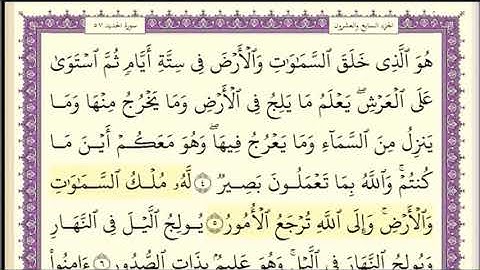 الجزء السابع والعشرون
سورة الحديد ٥٧
هُوَ ٱلَّذِى خَلَقَ ٱلسَّمَٰوَٰتِ وَٱلْأَرْضَ فِى سِتَّةِ أَيَّامٍ ثُمَّ ٱسْتَوَىٰ
عَلَى ٱلْعَرْشِ ۖ يَعْلَمُ مَا يَلِجُ فِى ٱلْأَرْضِ وَمَا يَخْرُجُ مِنْهَا وَمَا
يَنزِلُ مِنَ ٱلسَّمَآءِ وَمَا يَعْرُجُ فِيهَا ۖ وَهُوَ مَعَكُمْ أَيْنَ مَا
كُنتُمْ ۚ وَٱللَّهُ بِمَا تَعْمَلُونَ بَصِيرٌ ٤ لَّهُۥ مُلْكُ ٱلسَّمَٰوَٰتِ
وَٱلْأَرْضِ ۚ وَإِلَى ٱللَّهِ تُرْجَعُ ٱلْأُمُورُ ٥ يُولِجُ ٱلَّيْلَ فِى ٱلنَّهَارِ
وَيُولِجُ ٱلنَّهَارَ فِى ٱلَّيْلِ ۚ وَهُوَ عَلِيمٌۢ بِذَاتِ ٱلصُّدُورِ ٦ ءَامِنُوا۟